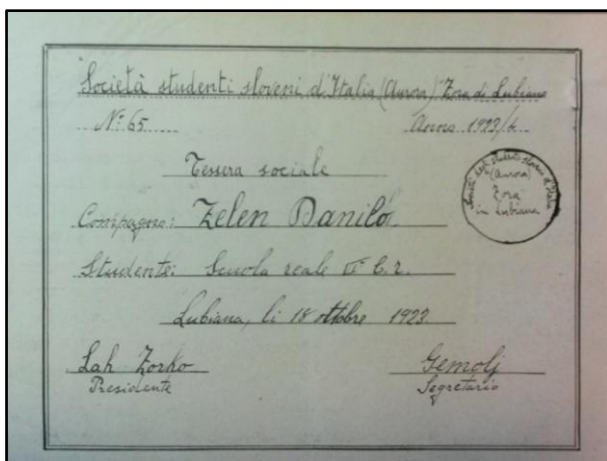 Società studenti sloveni d'Italia (Aurora) "Zora" di Lubiana
N° 65
Anno 1923/4
Tessera sociale
Compagno: Zelen Danilo
Studente: Scuola reale C. r.
Lubiana, li 18 ottobre 1923
Lah Zorko
Presidente
Gemolj
Segretario
(Aurora)
Zora
in Lubiana